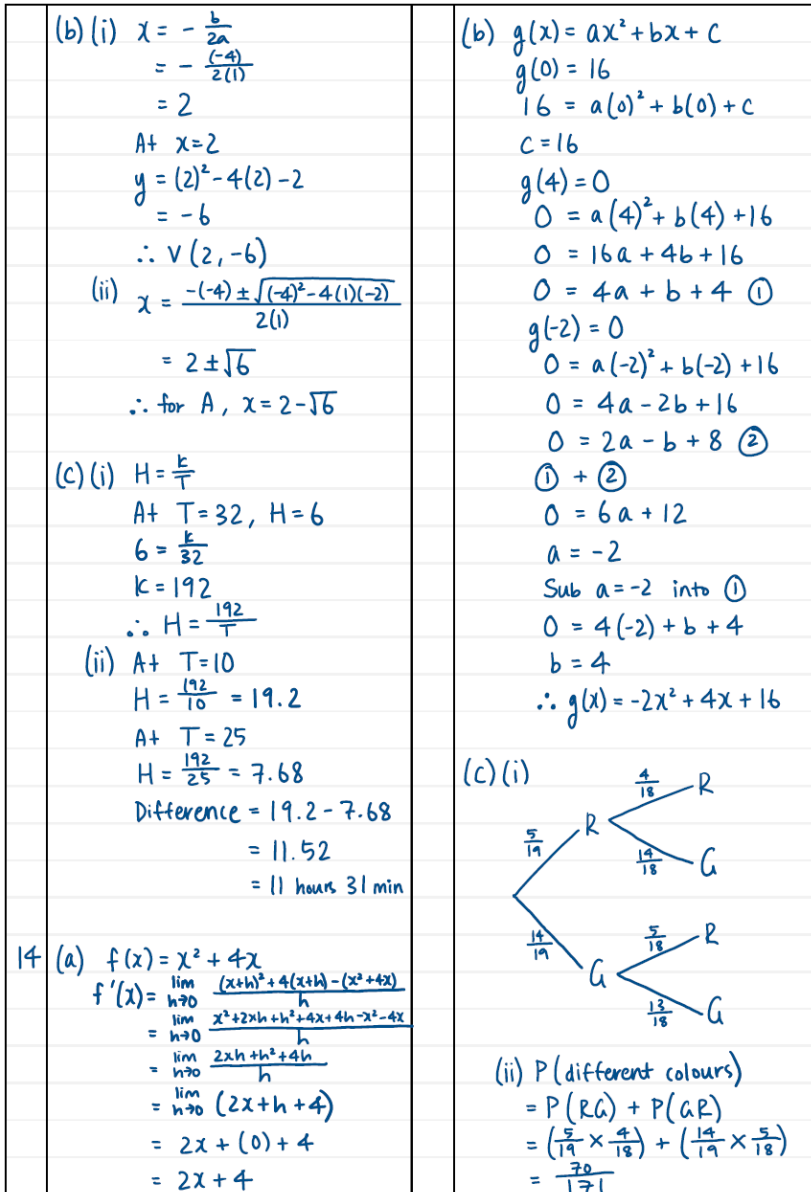 (b) (i) x = - b/2a
= - (-4)/2(1)
= 2
At x=2
y = (2)² - 4(2) - 2
= -6
∴ V (2, -6)
(ii) x = (-(-4) ± √((-4)² - 4(1)(-2)))/2(1)
= 2 ± √6
∴ for A, x = 2-√6
(c) (i) H = k/T
At T=32, H=6
6 = k/32
k = 192
∴ H = 192/T
(ii) At T=10
H = 192/10 = 19.2
At T=25
H = 192/25 = 7.68
Difference = 19.2 - 7.68
= 11.52
= 11 hours 31 min
14 (a) f(x) = x² + 4x
f'(x) = lim h→0 ((x+h)² + 4(x+h) - (x²+4x))/h
= lim h→0 (x²+2xh+h²+4x+4h-x²-4x)/h
= lim h→0 (2xh+h²+4h)/h
= lim h→0 (2x+h+4)
= 2x + (0) + 4
= 2x + 4
(b) g(x) = ax² + bx + c
g(0) = 16
16 = a(0)² + b(0) + c
c = 16
g(4) = 0
0 = a(4)² + b(4) + 16
0 = 16a + 4b + 16
0 = 4a + b + 4 ①
g(-2) = 0
0 = a(-2)² + b(-2) + 16
0 = 4a - 2b + 16
0 = 2a - b + 8 ②
① + ②
0 = 6a + 12
a = -2
Sub a=-2 into ①
0 = 4(-2) + b + 4
b = 4
∴ g(x) = -2x² + 4x + 16
(c) (i)
4/18 R
5/19 R
14/18 G
14/19 G
5/18 R
13/18 G
(ii) P(different colours)
= P(RG) + P(GR)
= (5/19 × 4/18) + (14/19 × 5/18)
= 70/171